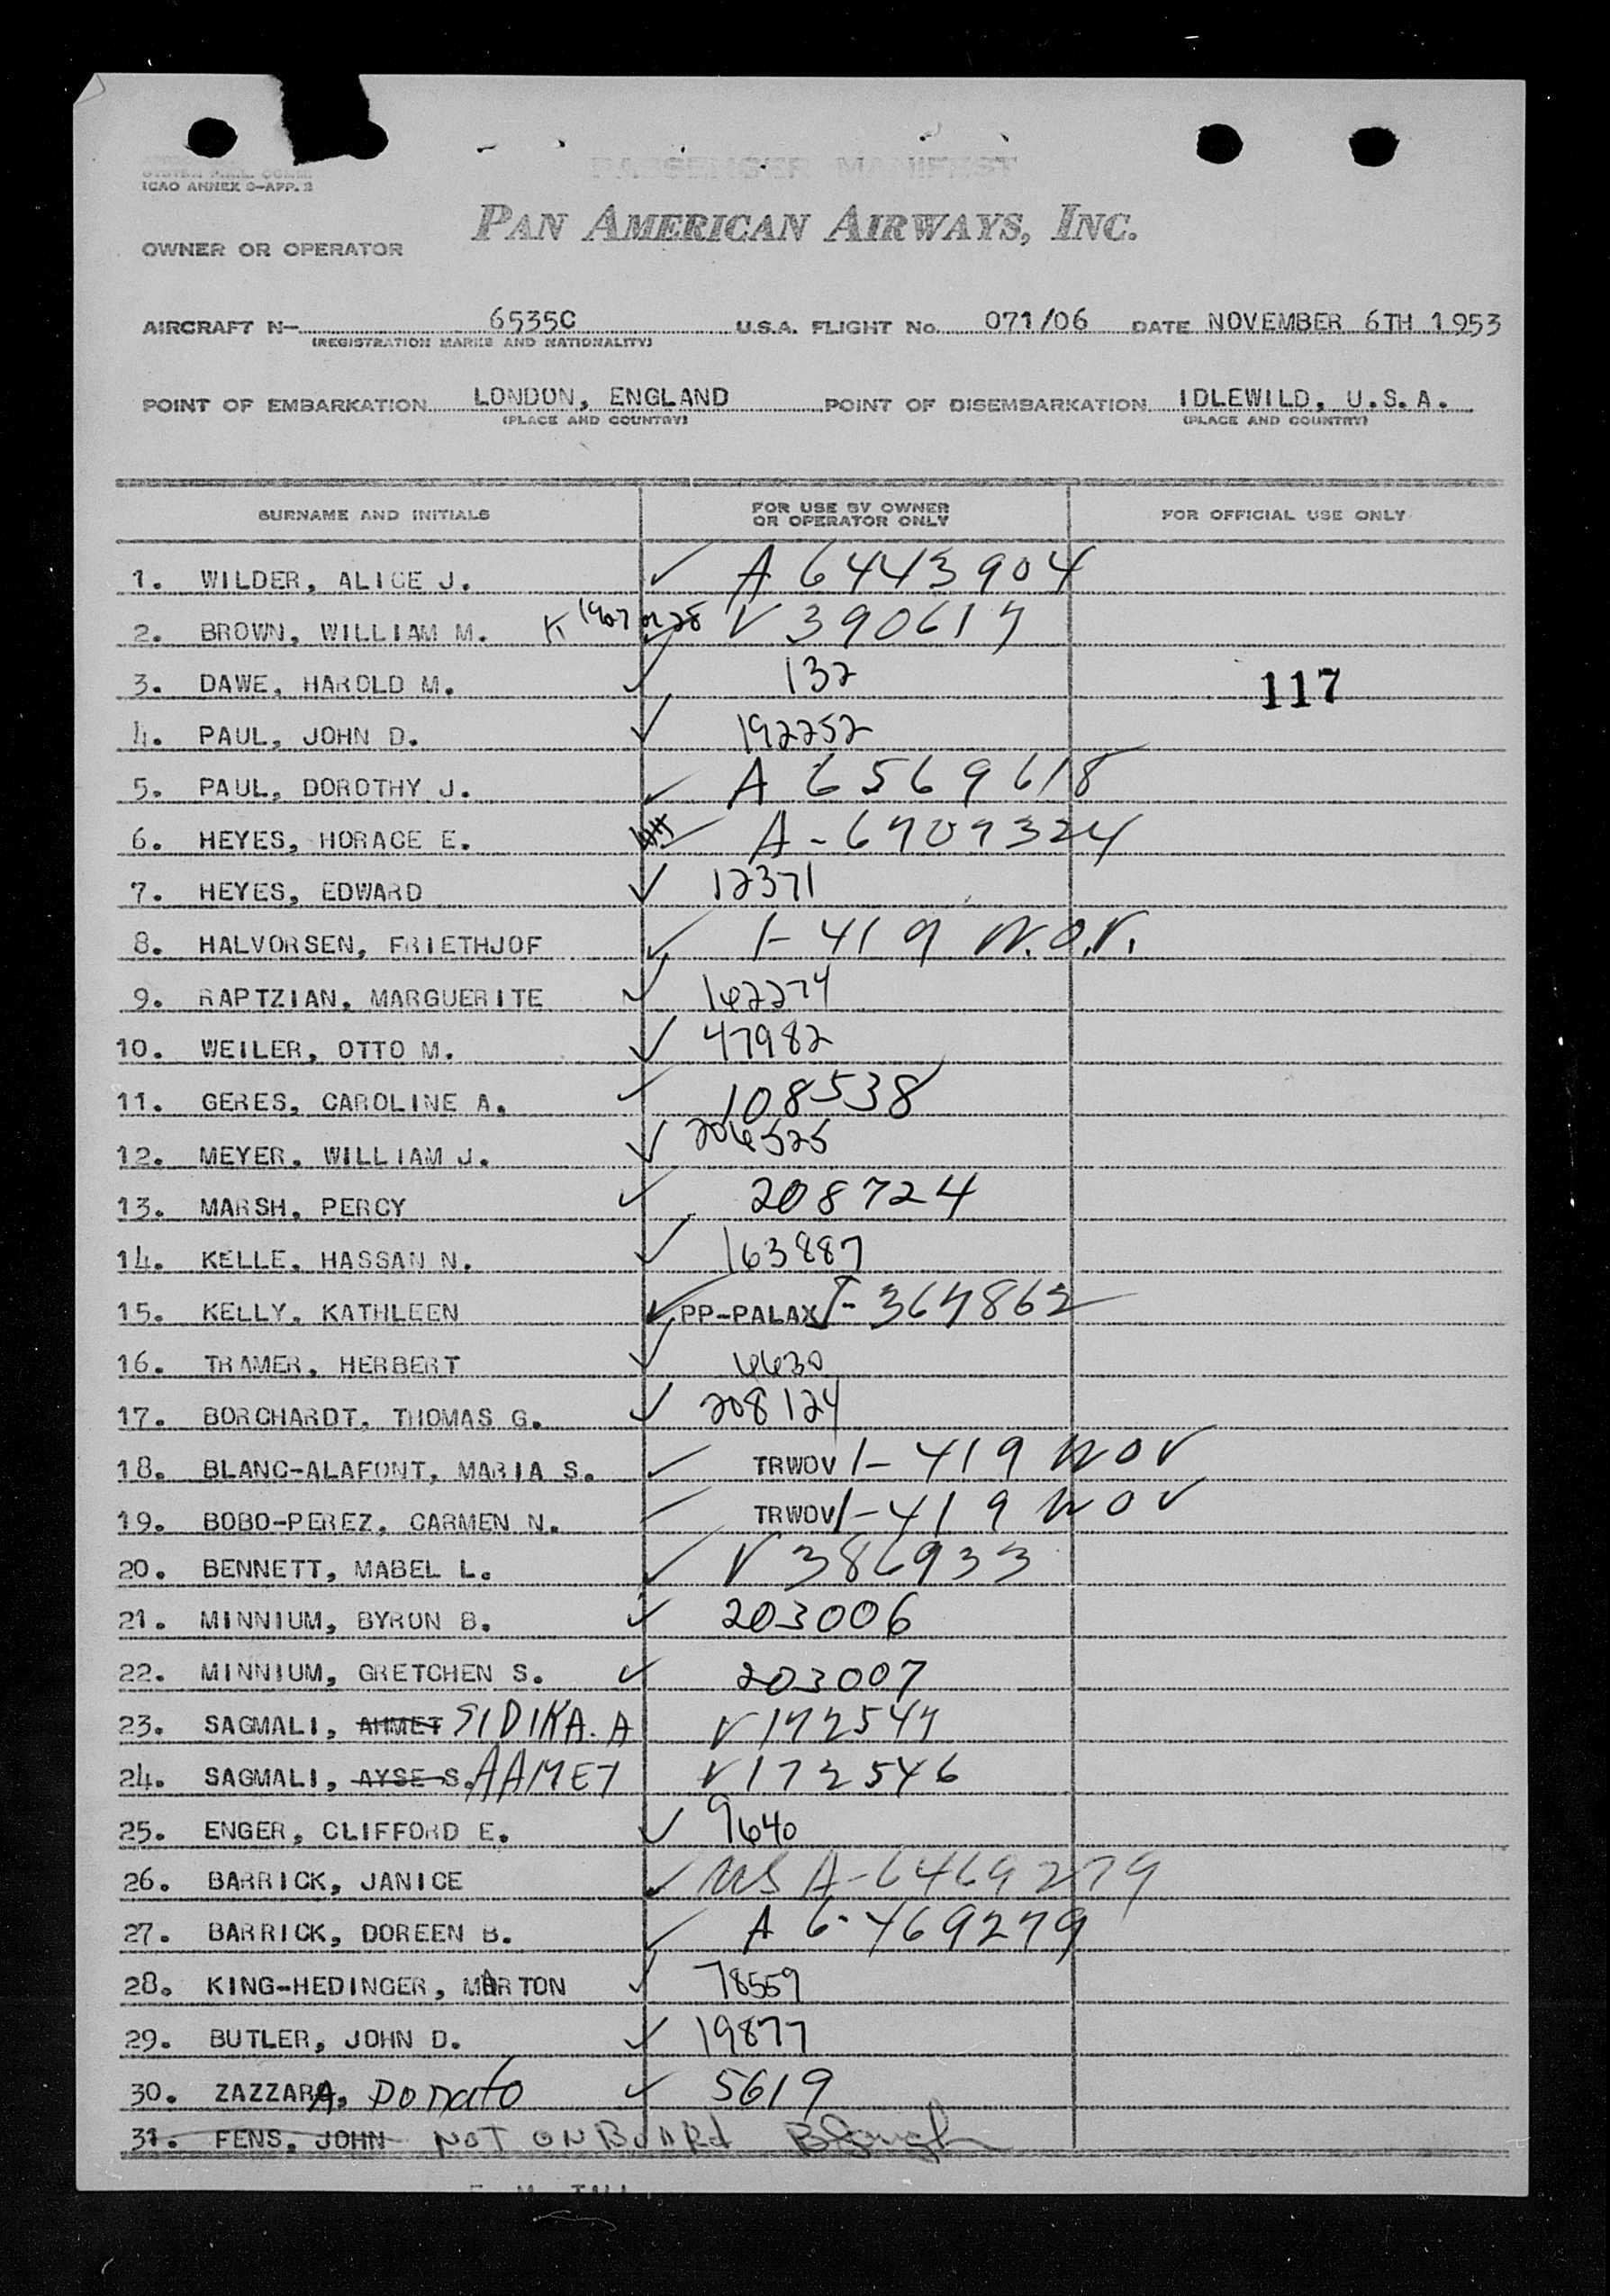 PASSENGER MANIFEST
ICAO ANNEX 9-APP. 3
PAN AMERICAN AIRWAYS, INC.
OWNER OR OPERATOR
AIRCRAFT N- 6535C U.S.A. FLIGHT No. 071/06 DATE NOVEMBER 6TH 1953
(REGISTRATION MARKS AND NATIONALITY)
POINT OF EMBARKATION LONDON, ENGLAND POINT OF DISEMBARKATION IDLEWILD, U.S.A.
(PLACE AND COUNTRY) (PLACE AND COUNTRY)
SURNAME AND INITIALS FOR USE BY OWNER OR OPERATOR ONLY FOR OFFICIAL USE ONLY
1. WILDER, ALICE J. ✓ A 6443904
2. BROWN, WILLIAM M. V 390617
3. DAWE, HAROLD M. ✓ 132 117
4. PAUL, JOHN D. ✓ 192252
5. PAUL, DOROTHY J. ✓ A 6569618
6. HEYES, HORACE E. A-6709324
7. HEYES, EDWARD ✓ 12371
8. HALVORSEN, FRIETHJOF ✓ 1-419 W.O.V.
9. RAPTZIAN, MARGUERITE ✓ 162274
10. WEILER, OTTO M. ✓ 47982
11. GERES, CAROLINE A. ✓ 108538
12. MEYER, WILLIAM J. ✓ 206525
13. MARSH, PERCY ✓ 208724
14. KELLE, HASSAN N. ✓ 163887
15. KELLY, KATHLEEN ✓ PP-PALAX I-367862
16. TRAMER, HERBERT ✓ 6630
17. BORCHARDT, THOMAS G. ✓ 208124
18. BLANC-ALAFONT, MARIA S. ✓ TRWOV 1-419 WOV
19. BOBO-PEREZ, CARMEN N. ✓ TRWOV 1-419 WOV
20. BENNETT, MABEL L. ✓ V 386933
21. MINNIUM, BYRON B. ✓ 203006
22. MINNIUM, GRETCHEN S. ✓ 203007
23. SAGMALI, AHMET SIDIKA. A V172547
24. SAGMALI, AYSE S. AAMET V172546
25. ENGER, CLIFFORD E. ✓ 9640
26. BARRICK, JANICE ✓ US A-6469279
27. BARRICK, DOREEN B. ✓ A 6-469279
28. KING-HEDINGER, MARTON ✓ 78559
29. BUTLER, JOHN D. ✓ 19877
30. ZAZZARA, Donato ✓ 5619
31. FENS, JOHN NOT ON BOARD